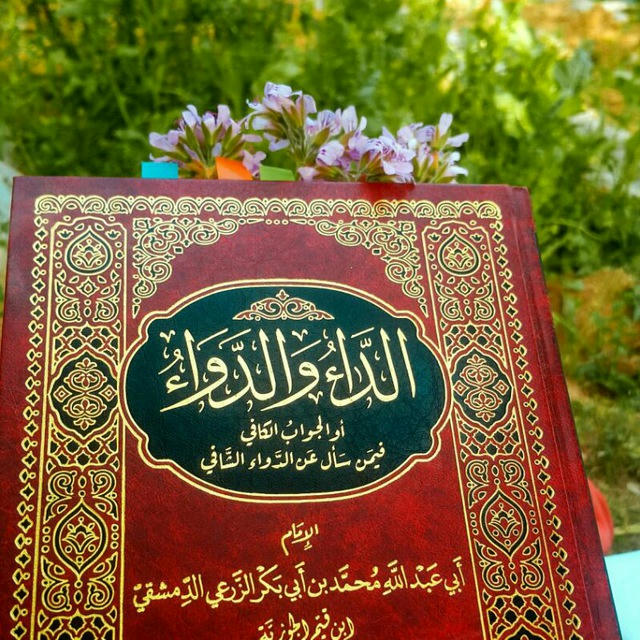 الدَّاءُ وَالدَّوَاءُ
أو الجوابُ الكافي
فيمَن سَأل عَن الدَّواءِ الشَّافي
الإِمَام
أَبي عَبْد اللَّهِ مُحمَّد بن أَبي بَكْر الزَّرعي الدِّمشقيّ
ابن قيّم الجَوزيَّة